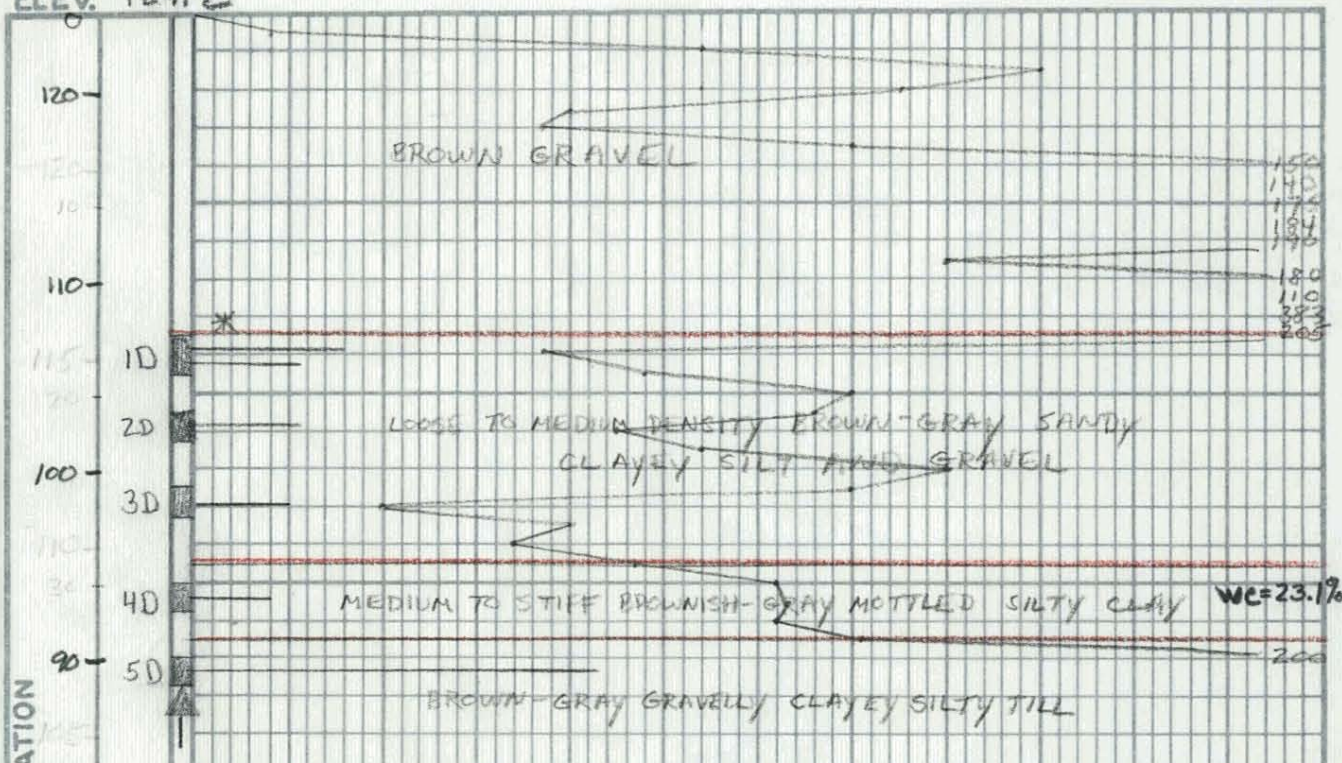 ELEV.
0
120
BROWN GRAVEL
150
140
175
184
190
110
180
110
383
205
1D
LOOSE TO MEDIUM DENSITY BROWN-GRAY SANDY
2D
CLAYEY SILT AND GRAVEL
100
3D
4D
MEDIUM TO STIFF BROWNISH-GRAY MOTTLED SILTY CLAY
WC=23.1%
90
5D
200
BROWN-GRAY GRAVELLY CLAYEY SILTY TILL